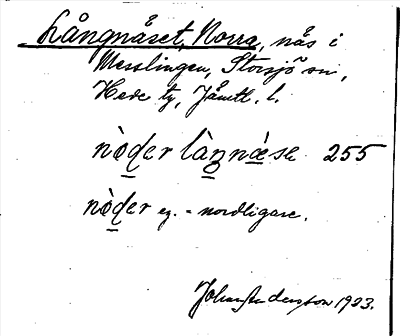 Långnäset, Norra, näs i
Messlingen, Storsjö sn,
Hede tg, Jämtl. l.
nòḏer làŋnæse 255
nòḏer eg. = nordligare.
Johan Andersson 1923.